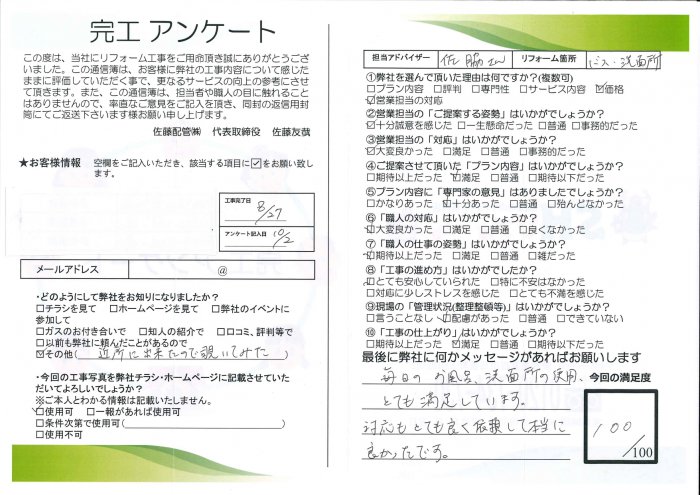 完工 アンケート
この度は、当社にリフォーム工事をご用命頂き誠にありがとうござ
いました。この通信簿は、お客様に弊社の工事内容について感じた
ままに評価していただく事で、更なるサービスの向上の参考にさせ
て頂きます。また、この通信簿は、担当者や職人の目に触れること
はありませんので、率直なご意見をご記入を頂き、同封の返信用封
筒にてご返送下さいます様お願い申し上げます。
佐藤配管㈱ 代表取締役 佐藤友哉
★お客様情報 空欄をご記入いただき、該当する項目に☑をお願い致し
ます。
工事完了日 8/27
アンケート記入日 10/2
メールアドレス @
・どのようにして弊社をお知りになりましたか?
□チラシを見て □ホームページを見て □弊社のイベントに
参加して
□ガスのお付き合いで □知人の紹介で □口コミ、評判等で
□以前も弊社に頼んだことがあるので
☑その他( 近所に出来たので覗いてみた )
・今回の工事写真を弊社チラシ・ホームページに記載させていた
だいてよろしいでしょうか?
※ご本人とわかる情報は記載いたしません。
☑使用可 □一報があれば使用可
□条件次第で使用可( )
□使用不可
担当アドバイザー 佐脇さん リフォーム箇所 バス・洗面所
①弊社を選んで頂いた理由は何ですか?(複数可)
□プラン内容 □評判 □専門性 □サービス内容 ☑価格
☑営業担当の対応
②営業担当の「ご提案する姿勢」はいかがでしょうか?
☑十分誠意を感じた □一生懸命だった □普通 □事務的だった
③営業担当の「対応」はいかがでしょうか?
☑大変良かった □満足 □普通 □事務的だった
④ご提案させて頂いた「プラン内容」はいかがでしょうか?
□期待以上だった ☑満足 □普通 □期待以下だった
⑤プラン内容に「専門家の意見」はありましたでしょうか?
□かなりあった ☑十分あった □普通 □殆んどなかった
⑥「職人の対応」はいかがでしょうか?
☑大変良かった □満足 □普通 □良くなかった
⑦「職人の仕事の姿勢」はいかがでしょうか?
☑期待以上だった □満足 □普通 □雑だった
⑧「工事の進め方」はいかがでしたか?
☑とても安心していられた □特に不安はなかった
□対応に少しストレスを感じた □とても不満を感じた
⑨現場の「管理状況(整理整頓等)」はいかがでしょうか?
□言うことなし ☑配慮があった □普通 □できていない
⑩「工事の仕上がり」はいかがでしょうか?
☑期待以上だった □満足 □普通 □期待以下だった
最後に弊社に何かメッセージがあればお願いします
毎日の お風呂、洗面所の使用、
とても満足しています。
対応もとても良く依頼して本当に
良かったです。
今回の満足度
100
/100